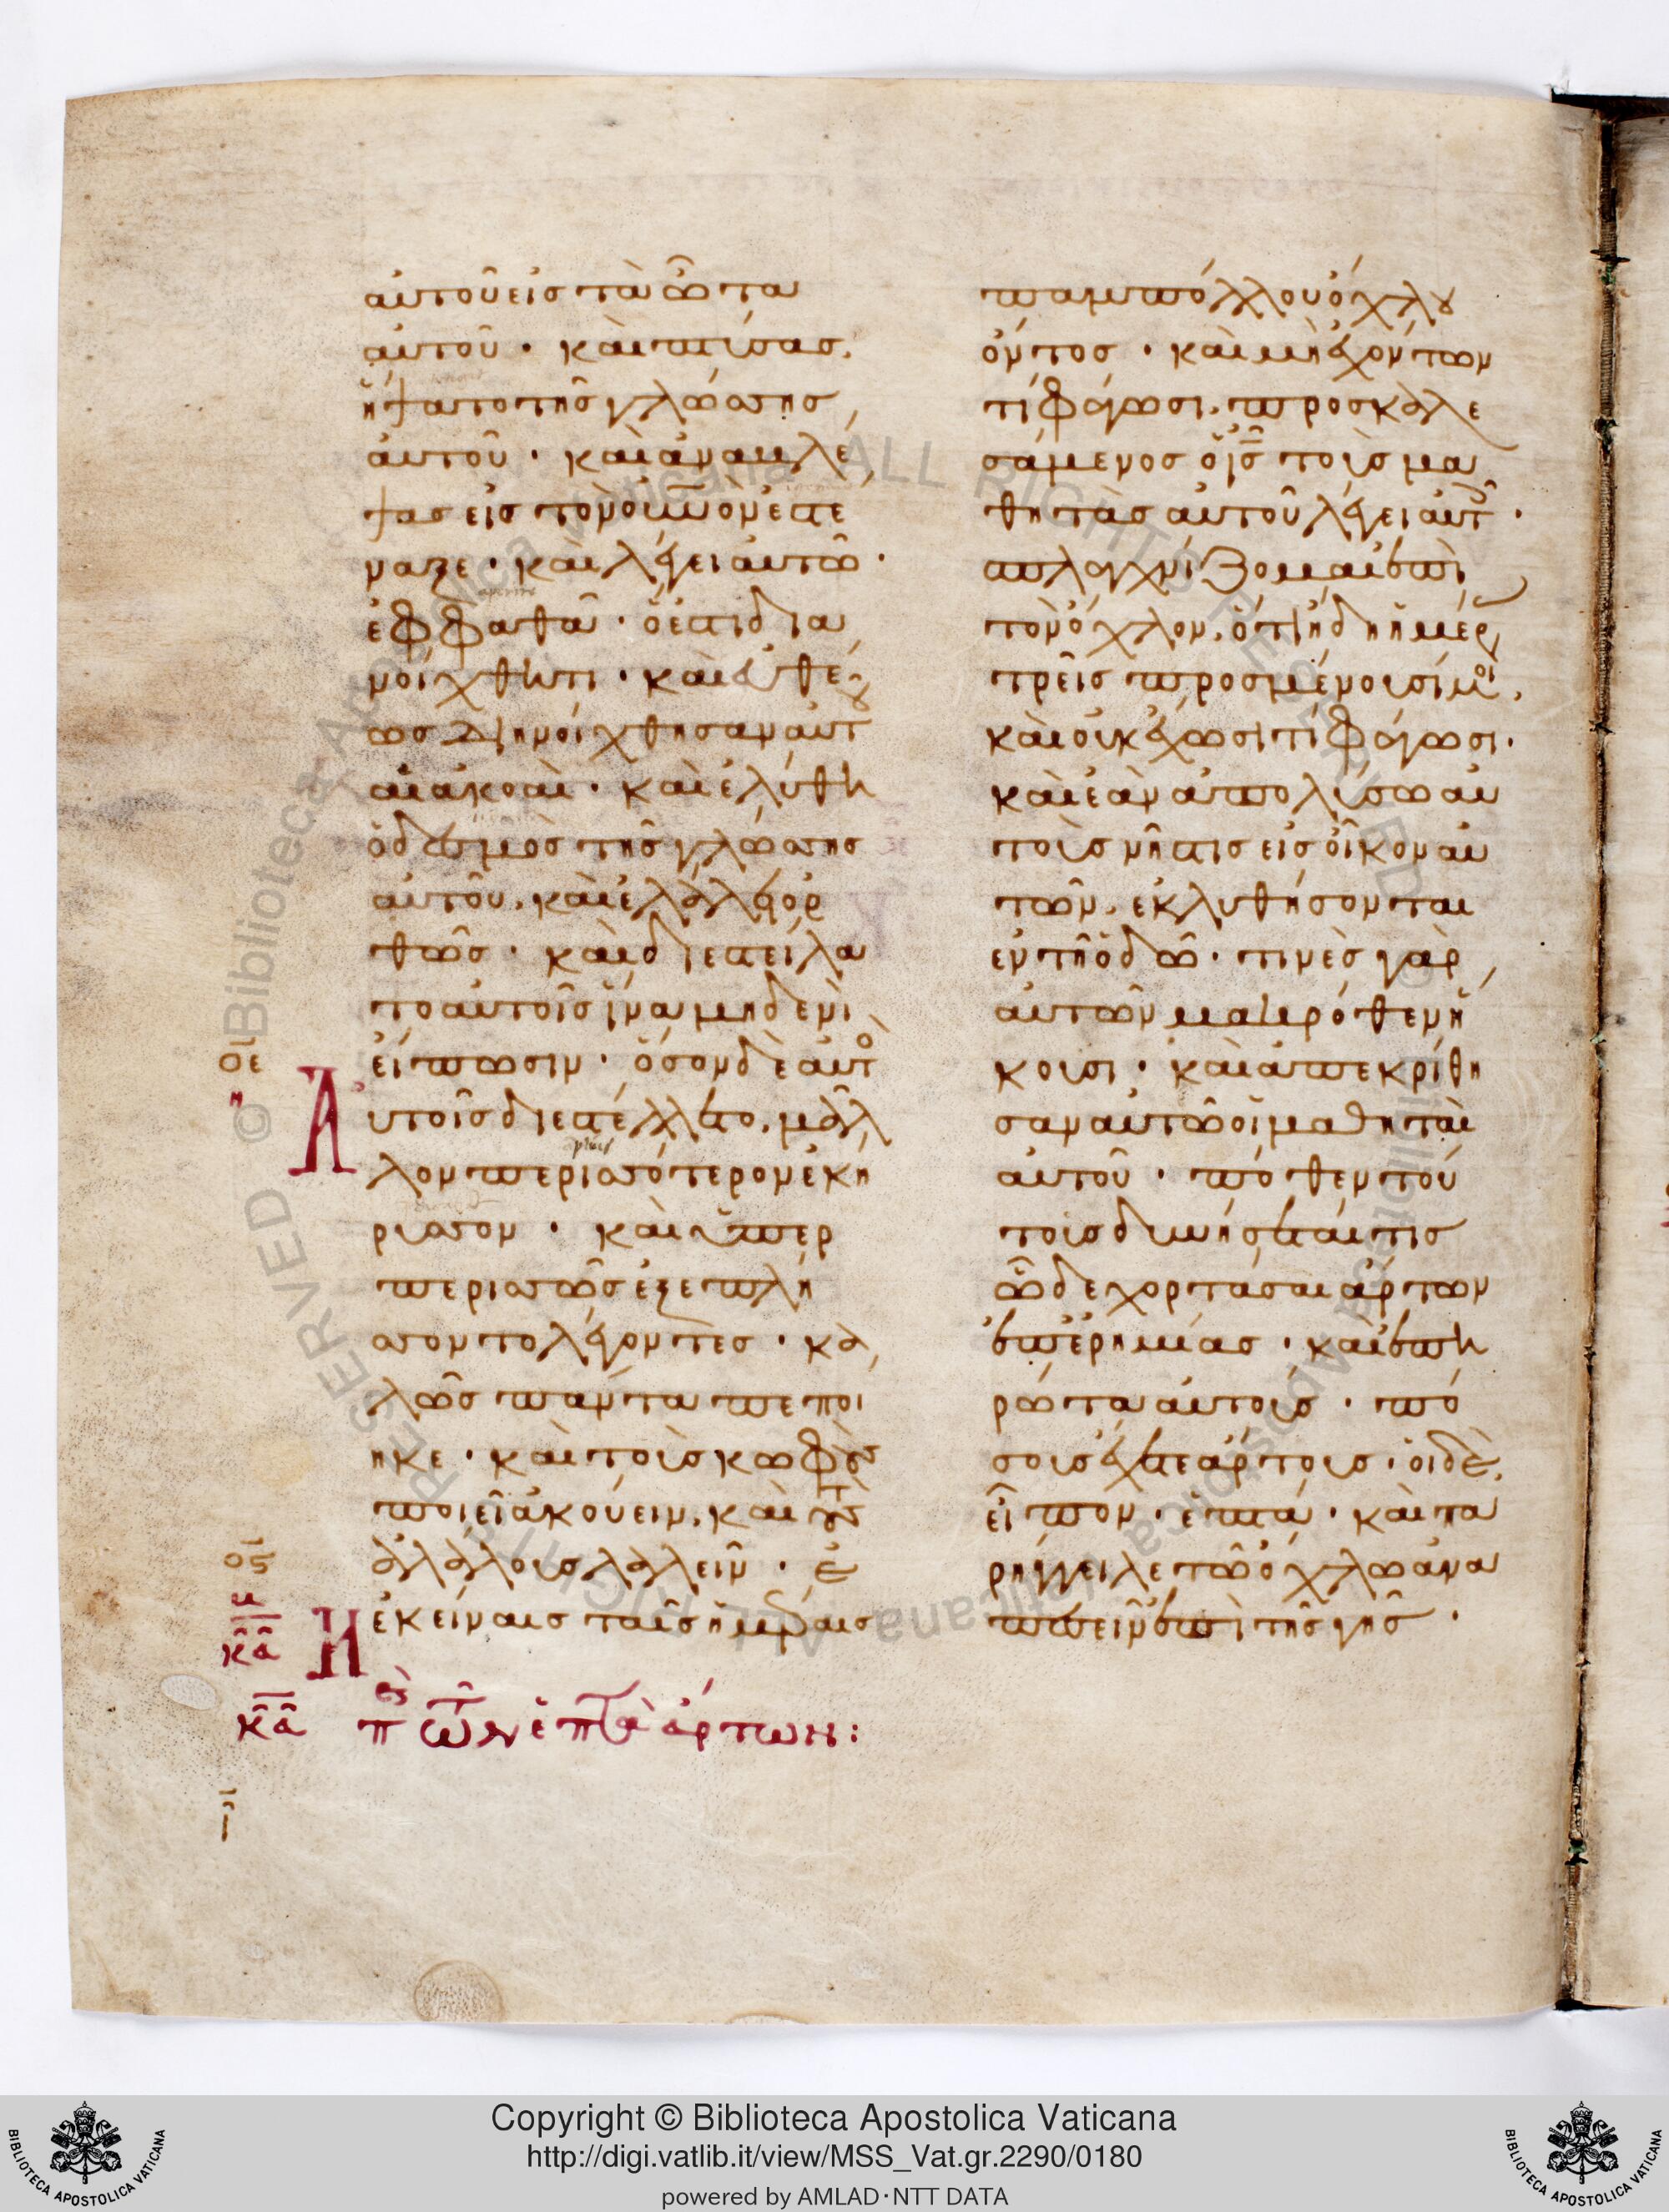 αὐτοῦ εἰς τὰ ὦτα
αὐτοῦ · καὶ πτύσας,
ἥψατο τῆς γλώσσης
αὐτοῦ · καὶ ἀναβλέ
ψας εἰς τὸν οὐνὸν ἐστέ
ναξε · καὶ λέγει αὐτῶ ·
ἐφφαθᾶ · ὅ ἐστι δια
νοίχθητι · καὶ εὐθέ
ως διηνοίχθησαν αὐτ
αἱ ἀκοαὶ · καὶ ἐλύθη
ὁ δεσμὸς τῆς γλώσσης
αὐτοῦ, καὶ ἐλάλει ὀρ
θῶς · καὶ διεστείλα
το αὐτοῖς ἵνα μηδενὶ
εἴπωσιν · ὅσον δὲ αὐτο
Α υτοῖς διεστέλλετο, μᾶλ
λον περισσότερον ἐκή
ρυσσον · καὶ ὑπερ
περισσῶς ἐξεπλή
σσοντο λέγοντες · κα
λῶς πάντα πεποί
ηκε · καὶ τοὺς κωφοὺς
ποιεῖ ἀκούειν, καὶ τοὺς
ἀλάλους λαλεῖν · ἐν
ἐκείναις ταῖς ἡμέραις
οε
η
ος
κα
κα π τῶν ἑπτὰ ἄρτων :
ι
παμπόλλου ὄχλου
ὄντος · καὶ μὴ ἐχόντων
τί φάγωσι, προσκαλε
σάμενος ὁ ις τοὺς μα
θητὰς αὐτοῦ λέγει αὐτ ·
σπλαγχνίζομαι ἐπὶ
τὸν ὄχλον, ὅτι ἤδη ἡμέρ
τρεῖς προσμένουσί μοι,
καὶ οὐκ ἔχωσι τί φάγωσι ·
καὶ ἐὰν ἀπολύσω αυ
τοὺς νήστις εἰς οἶκον αυ
τῶν, ἐκλυθήσονται
ἐν τῆ ὁδῶ · τινὲς γὰρ
αὐτῶν μακρόθεν ἥ
κουσι · καὶ ἀπεκρίθη
σαν αὐτῶ οἱ μαθηταὶ
αὐτοῦ · πόθεν τού
τους δυνήσεταί τις
ὧδε χορτάσαι ἄρτων
ἐπ ἐρημίας · καὶ ἐπη
ρώτα αὐτούς · πό
σους ἔχετε ἄρτους · οἱ δὲ
εἶπον · ἑπτά · καὶ πα
ρήγγειλε τῶ ὄχλω ἀνα
πεσεῖν ἐπὶ τῆς γῆς ·
Copyright © Biblioteca Apostolica Vaticana
http://digi.vatlib.it/view/MSS_Vat.gr.2290/0180
powered by AMLAD·NTT DATA
BIBLIOTECA APOSTOLICA VATICANA
BIBLIOTECA APOSTOLICA VATICANA